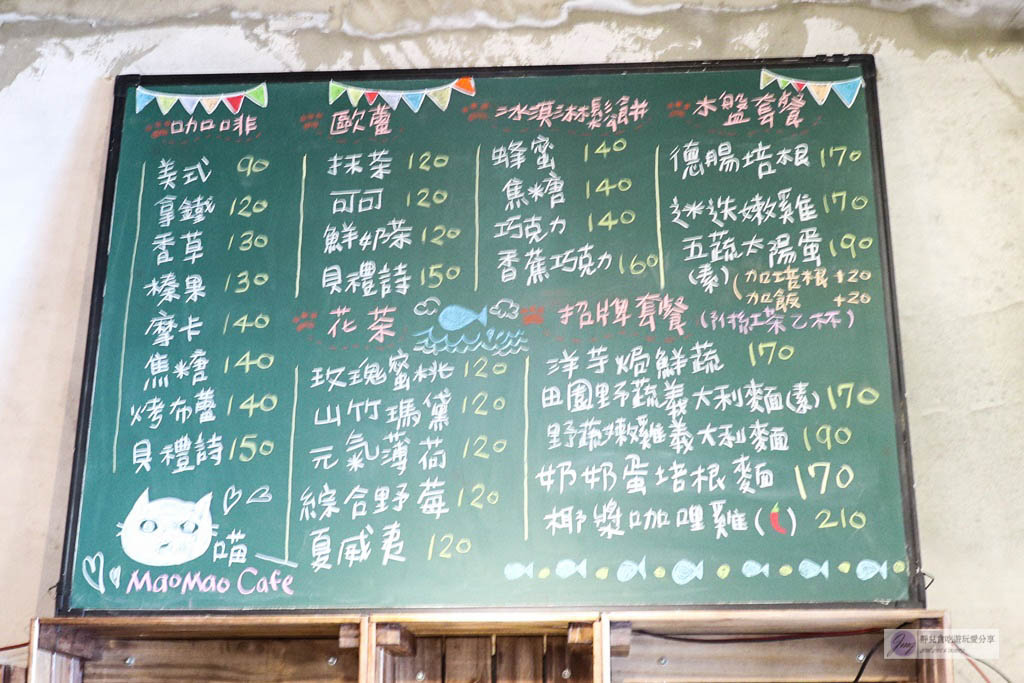 咖啡
美式 90
拿鐵 120
香草 130
榛果 130
摩卡 140
焦糖 140
烤布蕾 140
貝禮詩 150
喵
MaoMao Cafe
歐蕾
抹茶 120
可可 120
鮮奶茶 120
貝禮詩 150
花茶
玫瑰蜜桃 120
山竹瑪黛 120
元氣薄荷 120
綜合野莓 120
夏威夷 120
冰淇淋鬆餅
蜂蜜 140
焦糖 140
巧克力 140
香蕉巧克力 160
木盤套餐
德腸培根 170
迷迭嫩雞 170
五蔬太陽蛋 190
(素) (加培根 +20
加飯 +20
招牌套餐 (附紅茶乙杯)
洋芋焗鮮蔬 170
田園野蔬義大利麵(素) 170
野蔬嫩雞義大利麵 190
奶奶蛋培根麵 170
椰漿咖哩雞( ) 210
靜兒貪吃遊玩愛分享